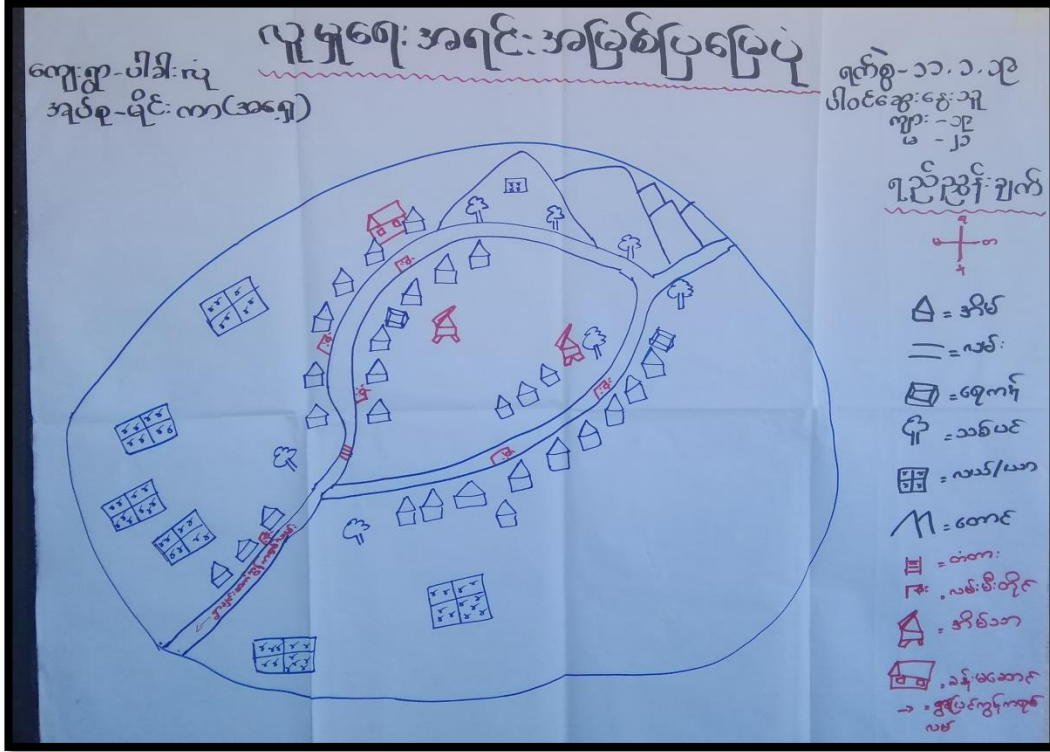 လူမှုရေးအရင်းအမြစ်ပြမြေပုံ
ကျေးရွာ-ပါခါးလုံ
အုပ်စု-မိုင်းကာ(အရှေ့)
ရက်စွဲ-၁၁.၁.၁၉
ပါဝင်ဆွေးနွေးသူ
ကျား -၁၉
မ -၂၁
ရည်ညွှန်းချက်
= အိမ်
= လမ်း
= ရေကန်
= သစ်ပင်
= လယ်/ယာ
= တောင်
= တံတား
= လမ်းမီးတိုင်
= အိမ်သာ
= ခန်းမဆောင်